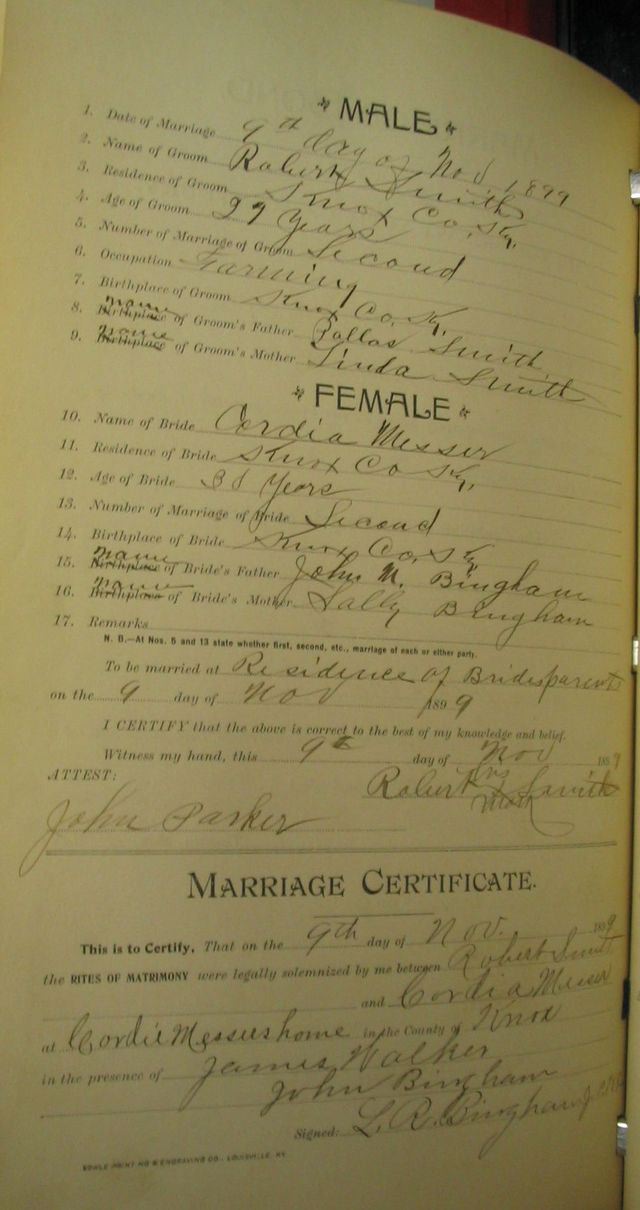 MALE
1. Date of Marriage 9th day of Nov 1899
2. Name of Groom Robert Smith
3. Residence of Groom Knox Co, Ky,
4. Age of Groom 29 Years
5. Number of Marriage of Groom Second
6. Occupation Farming
7. Birthplace of Groom Knox Co. Ky,
8. Birthplace name of Groom's Father Dallas Smith
9. Birthplace name of Groom's Mother Linda Smith
FEMALE
10. Name of Bride Cordia Messer
11. Residence of Bride Knox Co Ky,
12. Age of Bride Years
13. Number of Marriage of Bride Second
14. Birthplace of Bride Knox Co. Ky
15. Birthplace name of Bride's Father John N. Bingham
16. Birthplace name of Bride's Mother Sally Bingham
17. Remarks
N. B.—At Nos. 5 and 13 state whether first, second, etc., marriage of each or either party.
To be married at Residence of Brides parents
on the 9 day of Nov 1899
I CERTIFY that the above is correct to the best of my knowledge and belief.
Witness my hand, this 9th day of Nov 1899
ATTEST: Robert his x mark Smith
John Parker
MARRIAGE CERTIFICATE.
This is to Certify, That on the 9th day of Nov. 1899
the RITES OF MATRIMONY were legally solemnized by me between Robert Smith
and Cordia Messer
at Cordie Messers home in the County of Knox
in the presence of James Walker
John Bingham
Signed: L. R. Bingham
PRINTING & ENGRAVING CO., LOUISVILLE, KY.